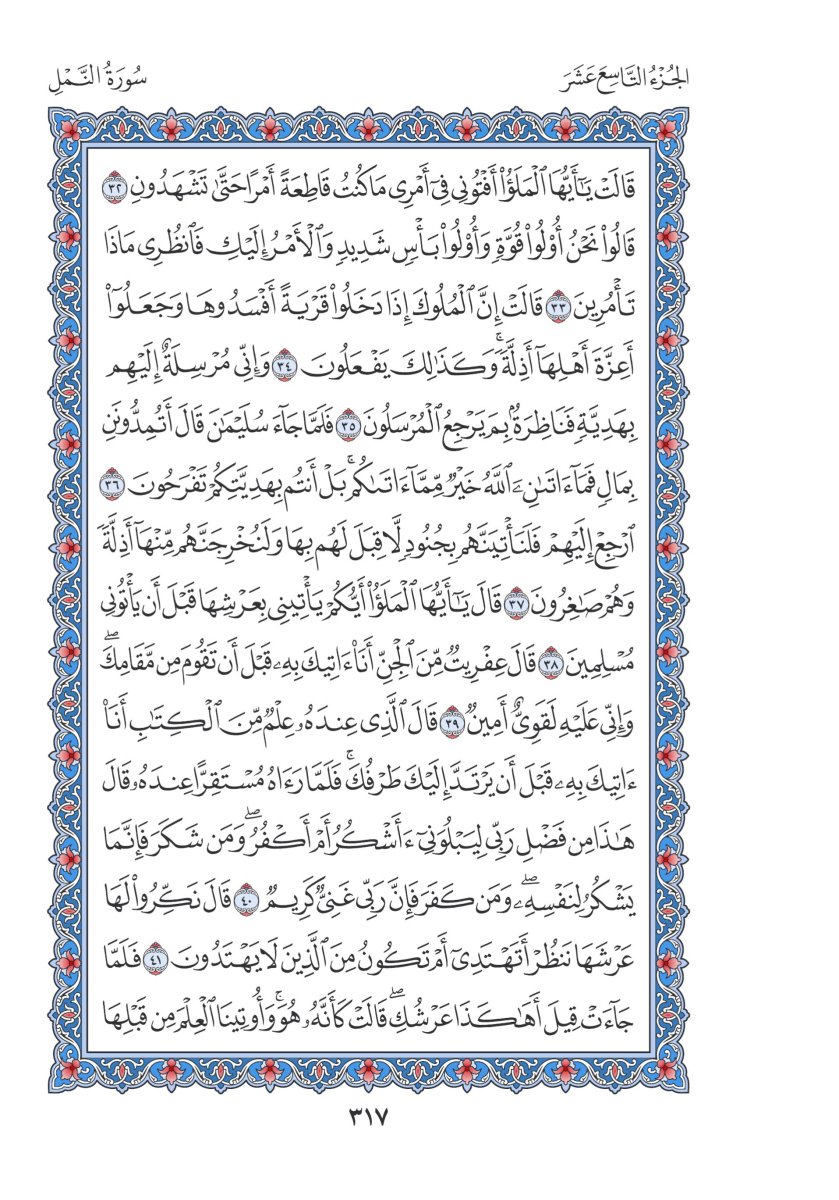 الجُزْءُ التَّاسِعَ عَشَرَ
سُورَةُ النَّمْلِ
قَالَتْ يَٰٓأَيُّهَا ٱلْمَلَؤُا۟ أَفْتُونِى فِىٓ أَمْرِى مَا كُنتُ قَاطِعَةً أَمْرًا حَتَّىٰ تَشْهَدُونِ ٣٢
قَالُوا۟ نَحْنُ أُو۟لُوا۟ قُوَّةٍ وَأُو۟لُوا۟ بَأْسٍ شَدِيدٍ وَٱلْأَمْرُ إِلَيْكِ فَٱنظُرِى مَاذَا
تَأْمُرِينَ ٣٣ قَالَتْ إِنَّ ٱلْمُلُوكَ إِذَا دَخَلُوا۟ قَرْيَةً أَفْسَدُوهَا وَجَعَلُوٓا۟
أَعِزَّةَ أَهْلِهَآ أَذِلَّةً ۚ وَكَذَٰلِكَ يَفْعَلُونَ ٣٤ وَإِنِّى مُرْسِلَةٌ إِلَيْهِم
بِهَدِيَّةٍ فَنَاظِرَةٌۢ بِمَ يَرْجِعُ ٱلْمُرْسَلُونَ ٣٥ فَلَمَّا جَآءَ سُلَيْمَٰنَ قَالَ أَتُمِدُّونَنِ
بِمَالٍ فَمَآ ءَاتَىٰنِۦَ ٱللَّهُ خَيْرٌ مِّمَّآ ءَاتَىٰكُم ۚ بَلْ أَنتُم بِهَدِيَّتِكُمْ تَفْرَحُونَ ٣٦
ٱرْجِعْ إِلَيْهِمْ فَلَنَأْتِيَنَّهُم بِجُنُودٍ لَّا قِبَلَ لَهُم بِهَا وَلَنُخْرِجَنَّهُم مِّنْهَآ أَذِلَّةً
وَهُمْ صَٰغِرُونَ ٣٧ قَالَ يَٰٓأَيُّهَا ٱلْمَلَؤُا۟ أَيُّكُمْ يَأْتِينِى بِعَرْشِهَا قَبْلَ أَن يَأْتُونِى
مُسْلِمِينَ ٣٨ قَالَ عِفْرِيتٌ مِّنَ ٱلْجِنِّ أَنَا۠ ءَاتِيكَ بِهِۦ قَبْلَ أَن تَقُومَ مِن مَّقَامِكَ ۖ
وَإِنِّى عَلَيْهِ لَقَوِىٌّ أَمِينٌ ٣٩ قَالَ ٱلَّذِى عِندَهُۥ عِلْمٌ مِّنَ ٱلْكِتَٰبِ أَنَا۠
ءَاتِيكَ بِهِۦ قَبْلَ أَن يَرْتَدَّ إِلَيْكَ طَرْفُكَ ۚ فَلَمَّا رَءَاهُ مُسْتَقِرًّا عِندَهُۥ قَالَ
هَٰذَا مِن فَضْلِ رَبِّى لِيَبْلُوَنِىٓ ءَأَشْكُرُ أَمْ أَكْفُرُ ۖ وَمَن شَكَرَ فَإِنَّمَا
يَشْكُرُ لِنَفْسِهِۦ ۖ وَمَن كَفَرَ فَإِنَّ رَبِّى غَنِىٌّ كَرِيمٌ ٤٠ قَالَ نَكِّرُوا۟ لَهَا
عَرْشَهَا نَنظُرْ أَتَهْتَدِىٓ أَمْ تَكُونُ مِنَ ٱلَّذِينَ لَا يَهْتَدُونَ ٤١ فَلَمَّا
جَآءَتْ قِيلَ أَهَٰكَذَا عَرْشُكِ ۖ قَالَتْ كَأَنَّهُۥ هُوَ ۚ وَأُوتِينَا ٱلْعِلْمَ مِن قَبْلِهَا
٣١٧